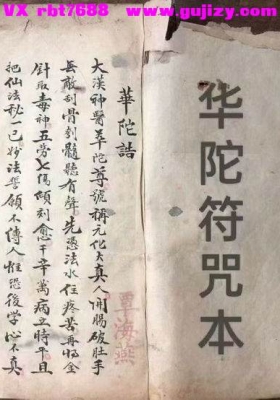 VX rbt7688
www.gujizy.com
華陀誥
大漢神醫華陀尊號稱元化大真人開腸破肚手
無敵刮骨到髓聽有聲先憑法水住疼苦再将金
針取毒神五勞七傷傾刻愈千辛萬病立時平且
把仙法秘已妙法誓領不傳人惟恐後学心不真
覃海燕
华陀符咒本